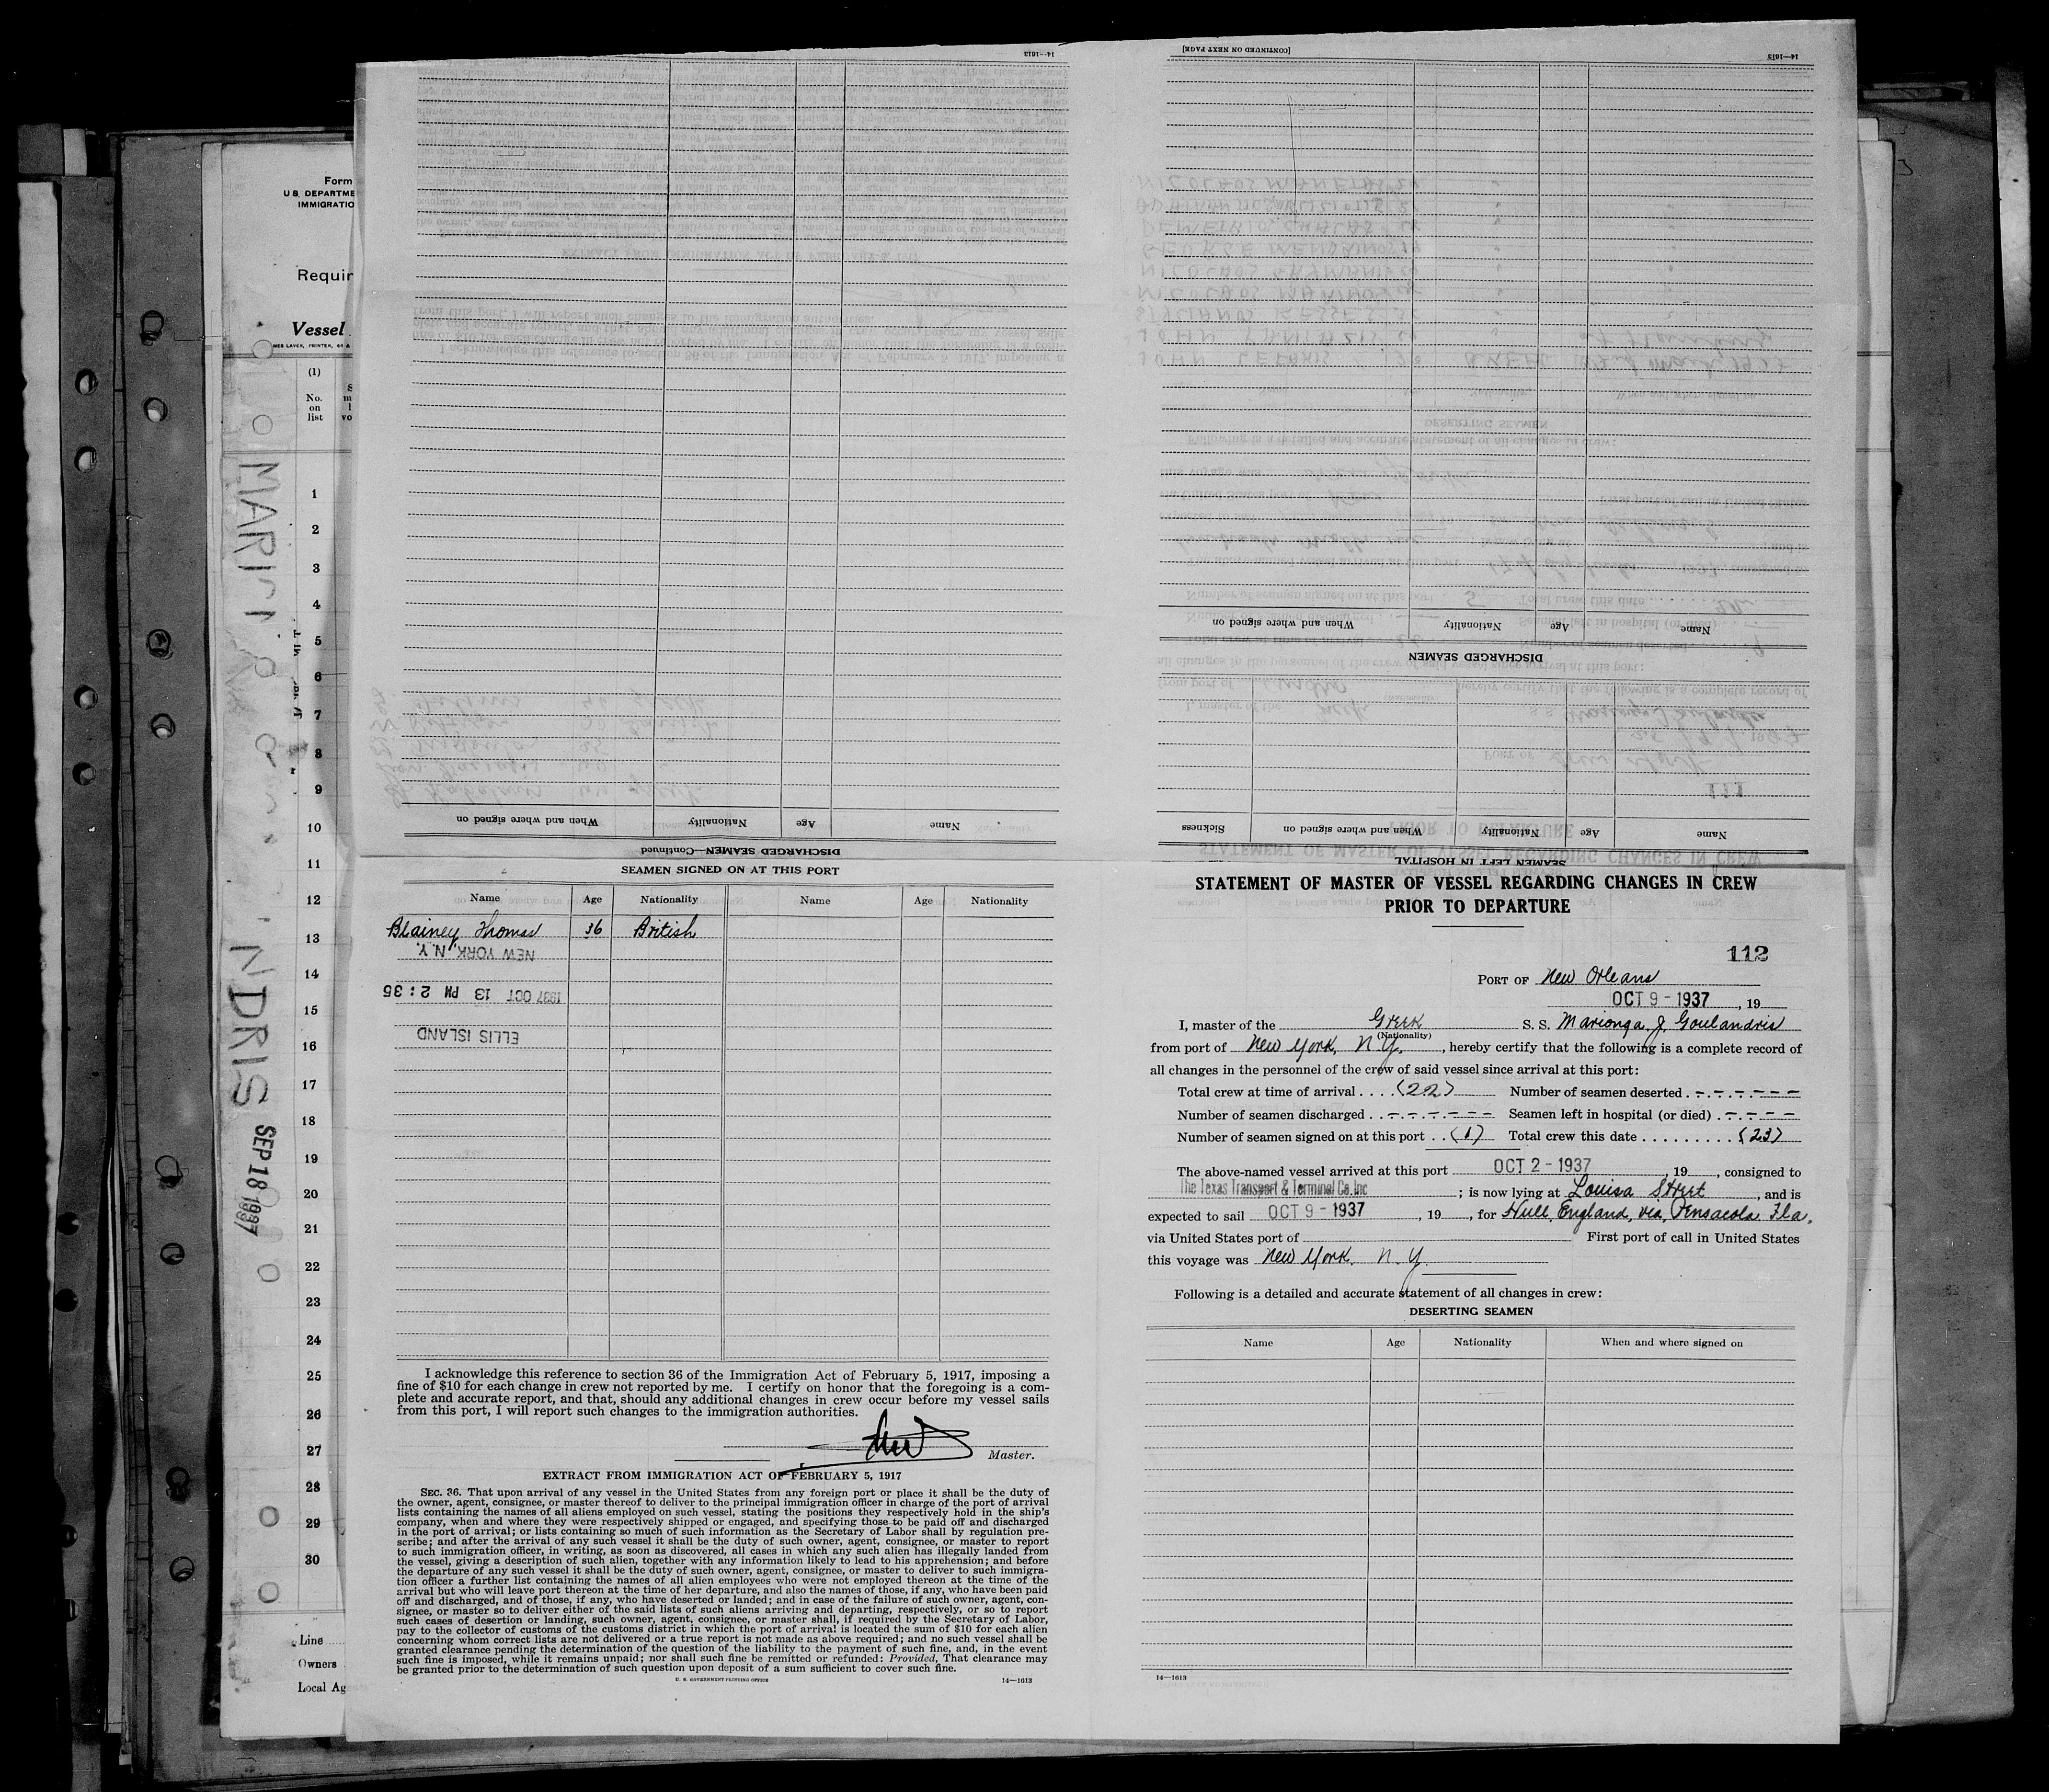 Form
U.S. DEPARTME
IMMIGRATIO
Requir
Vessel
(1)
No.
on
list
1
2
3
4
5
6
7
8
9
10
11
12
13
14
15
16
17
18
19
20
21
22
23
24
25
26
27
28
29
30
Line
Owners
Local Ag
NDRIS
SEP 18 1937
14—1613
DISCHARGED SEAMEN—Continued
Name Age Nationality When and where signed on
[CONTINUED ON NEXT PAGE]
14—1613
DISCHARGED SEAMEN
Name Age Nationality When and where signed on
SEAMEN LEFT IN HOSPITAL
Name Age Nationality When and where signed on Sickness
SEAMEN SIGNED ON AT THIS PORT
Name Age Nationality Name Age Nationality
Blainey Thomas 36 British
NEW YORK, N.Y.
1937 OCT 13 PM 2:35
ELLIS ISLAND
I acknowledge this reference to section 36 of the Immigration Act of February 5, 1917, imposing a
fine of $10 for each change in crew not reported by me. I certify on honor that the foregoing is a com-
plete and accurate report, and that, should any additional changes in crew occur before my vessel sails
from this port, I will report such changes to the immigration authorities.
Master.
EXTRACT FROM IMMIGRATION ACT OF FEBRUARY 5, 1917
SEC. 36. That upon arrival of any vessel in the United States from any foreign port or place it shall be the duty of
the owner, agent, consignee, or master thereof to deliver to the principal immigration officer in charge of the port of arrival
lists containing the names of all aliens employed on such vessel, stating the positions they respectively hold in the ship's
company, when and where they were respectively shipped or engaged, and specifying those to be paid off and discharged
in the port of arrival; or lists containing so much of such information as the Secretary of Labor shall by regulation pre-
scribe; and after the arrival of any such vessel it shall be the duty of such owner, agent, consignee, or master to report
to such immigration officer, in writing, as soon as discovered, all cases in which any such alien has illegally landed from
the vessel, giving a description of such alien, together with any information likely to lead to his apprehension; and before
the departure of any such vessel it shall be the duty of such owner, agent, consignee, or master to deliver to such immigra-
tion officer a further list containing the names of all alien employees who were not employed thereon at the time of the
arrival but who will leave port thereon at the time of her departure, and also the names of those, if any, who have been paid
off and discharged, and of those, if any, who have deserted or landed; and in case of the failure of such owner, agent, con-
signee, or master so to deliver either of the said lists of such aliens arriving and departing, respectively, or so to report
such cases of desertion or landing, such owner, agent, consignee, or master shall, if required by the Secretary of Labor,
pay to the collector of customs of the customs district in which the port of arrival is located the sum of $10 for each alien
concerning whom correct lists are not delivered or a true report is not made as above required; and no such vessel shall be
granted clearance pending the determination of the question of the liability to the payment of such fine, and, in the event
such fine is imposed, while it remains unpaid; nor shall such fine be remitted or refunded: Provided, That clearance may
be granted prior to the determination of such question upon deposit of a sum sufficient to cover such fine.
U. S. GOVERNMENT PRINTING OFFICE 14—1613
STATEMENT OF MASTER OF VESSEL REGARDING CHANGES IN CREW
PRIOR TO DEPARTURE
112
PORT OF New Orleans
OCT 9 - 1937, 19
I, master of the Greek S. S. Marionga J. Goulandris
(Nationality)
from port of New York, N.Y., hereby certify that the following is a complete record of
all changes in the personnel of the crew of said vessel since arrival at this port:
Total crew at time of arrival .... (22) Number of seamen deserted . -.-.-.---
Number of seamen discharged . .-.-.-.-.-- Seamen left in hospital (or died) .-.-.--
Number of seamen signed on at this port .. (1) Total crew this date .......... (23)
The above-named vessel arrived at this port OCT 2 - 1937, 19, consigned to
The Texas Transport & Terminal Co. Inc; is now lying at Louisa Street, and is
expected to sail OCT 9 - 1937, 19, for Hull, England, via, Pensacola Fla.
via United States port of First port of call in United States
this voyage was New York. N.Y.
Following is a detailed and accurate statement of all changes in crew:
DESERTING SEAMEN
Name Age Nationality When and where signed on
14—1613